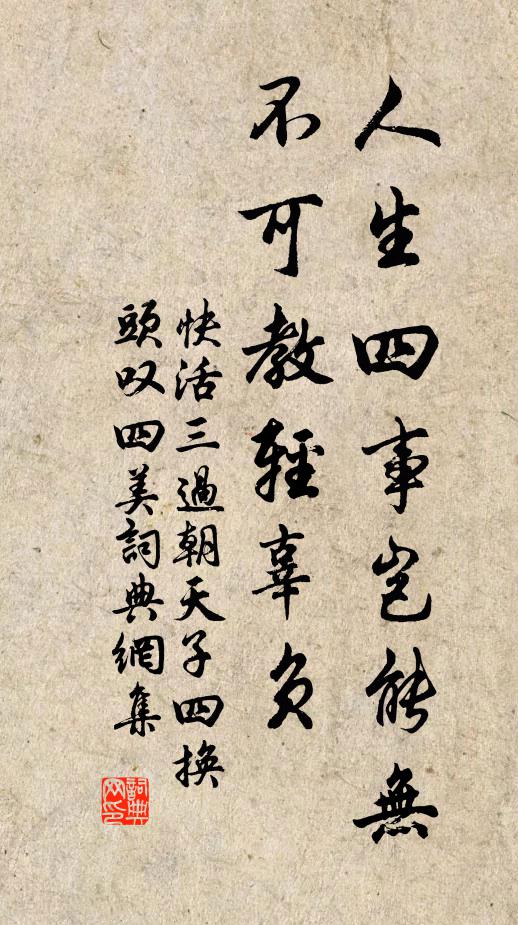 人生四事豈能無
不可教輕辜負
快活三過朝天子四換
頭叹四美詞典網集
詞典網印